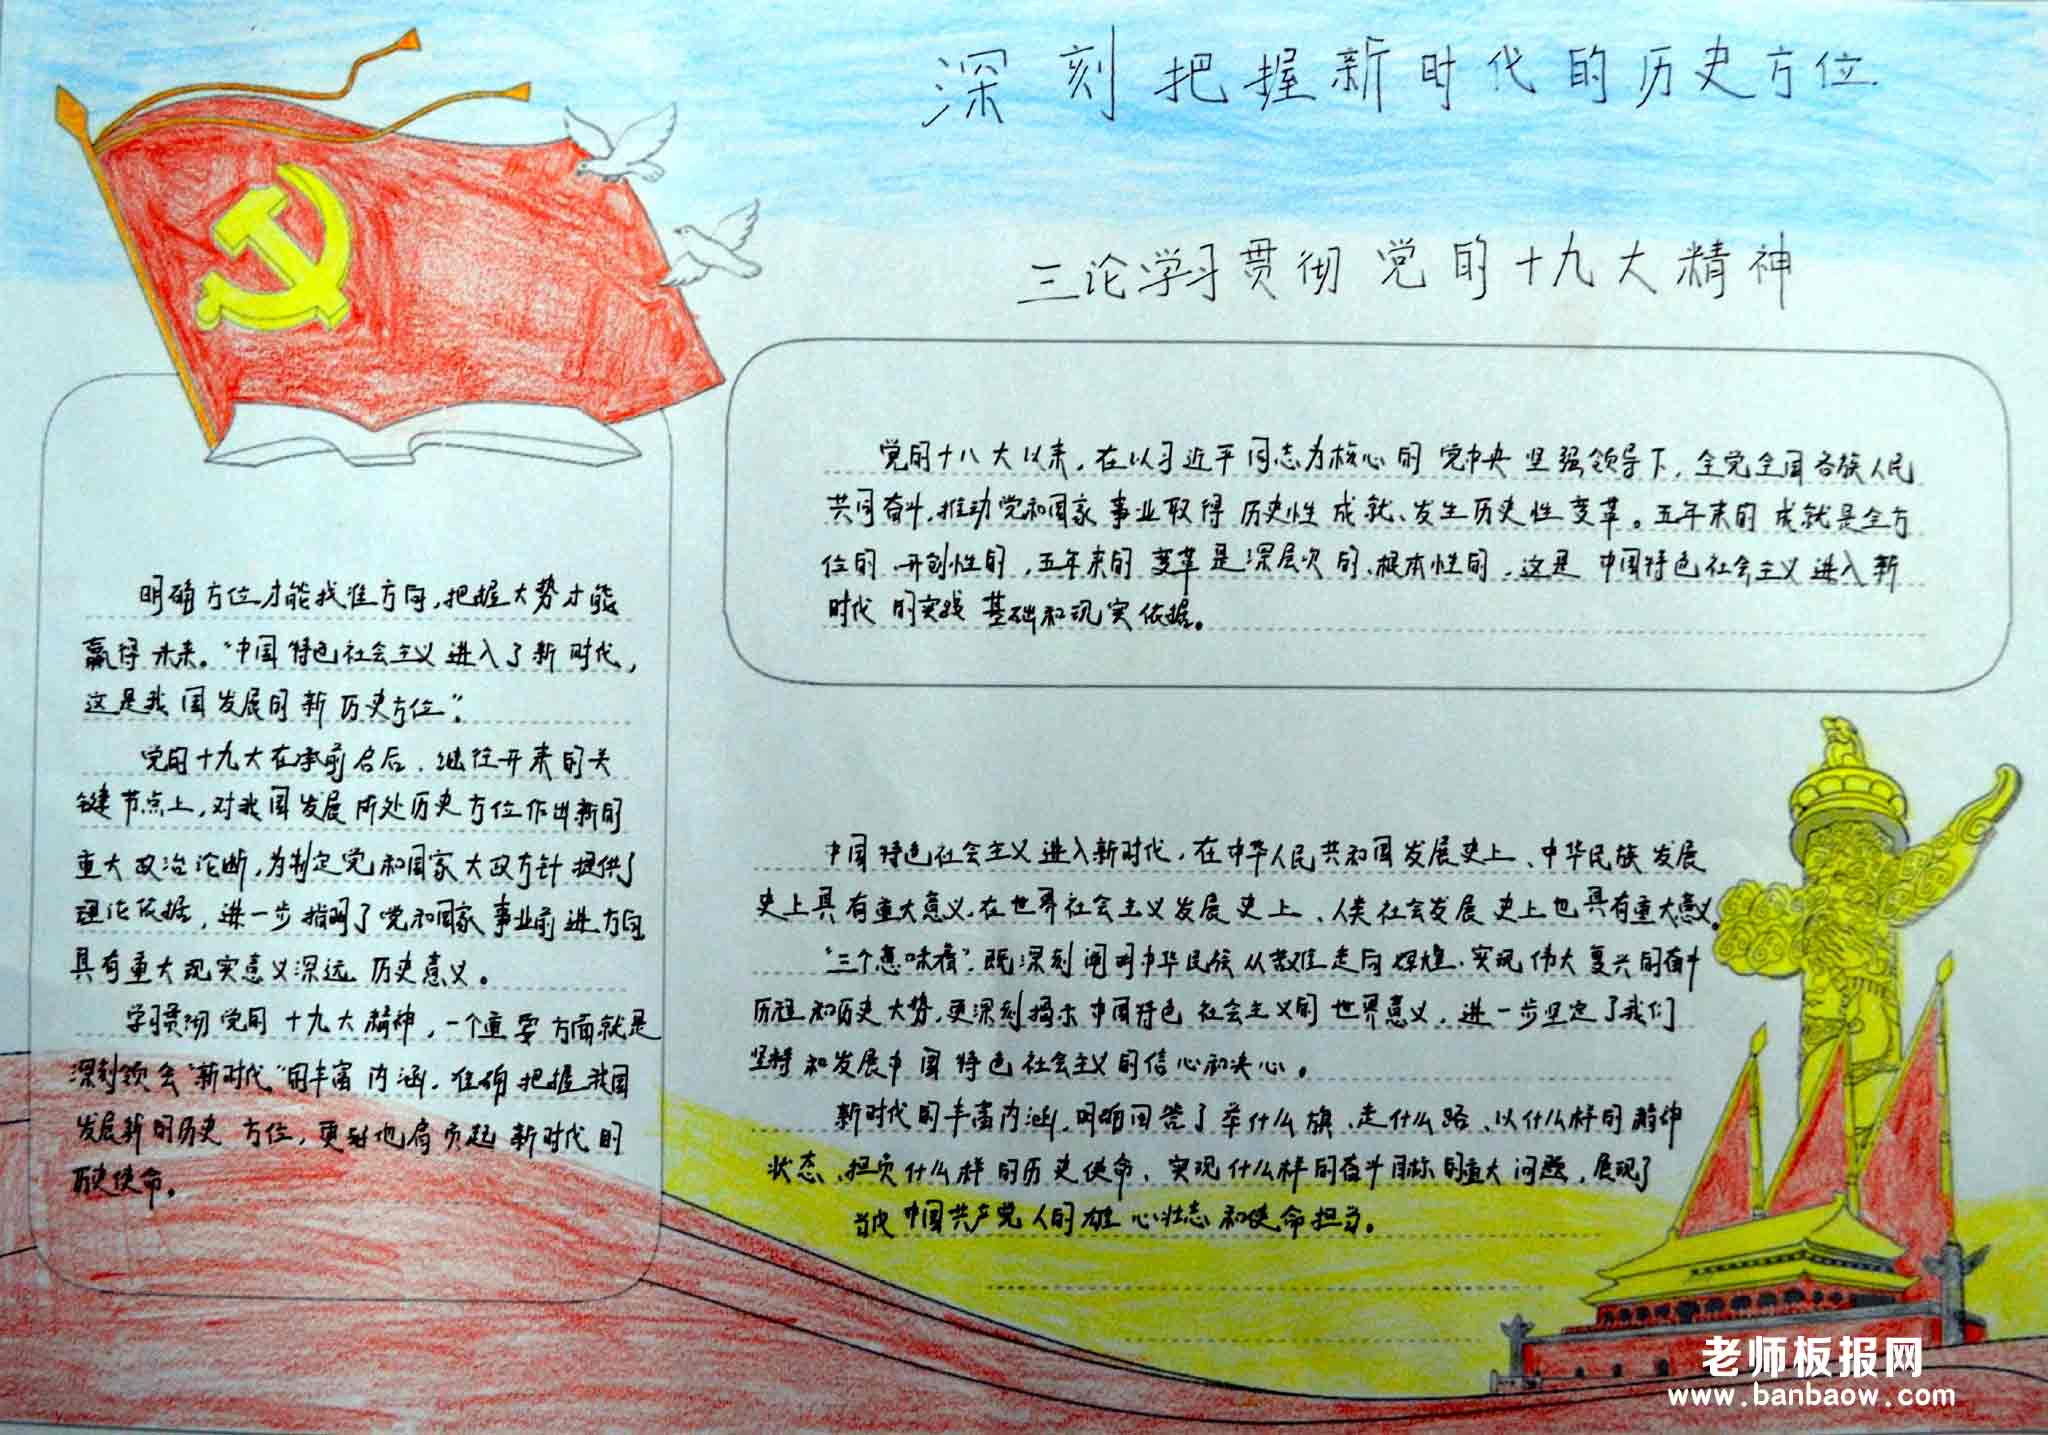 深刻把握新时代的历史方位
三论学习贯彻党的十九大精神
明确方位才能找准方向，把握大势才能
赢得未来。“中国特色社会主义进入了新时代，
这是我国发展的新历史方位”。
党的十九大在承前启后、继往开来的关
键节点上，对我国发展所处历史方位作出新的
重大政治论断，为制定党和国家大政方针提供了
理论依据，进一步指明了党和国家事业前进方向
具有重大现实意义深远历史意义。
学习贯彻党的十九大精神，一个重要方面就是
深刻领会“新时代”的丰富内涵，准确把握我国
发展新的历史方位，更好地肩负起新时代的
历史使命。
党的十八大以来，在以习近平同志为核心的党中央坚强领导下，全党全国各族人民
共同奋斗，推动党和国家事业取得历史性成就、发生历史性变革。五年来的成就是全方
位的、开创性的，五年来的变革是深层次的、根本性的，这是中国特色社会主义进入新
时代的实践基础和现实依据。
中国特色社会主义进入新时代，在中华人民共和国发展史上、中华民族发展
史上具有重大意义，在世界社会主义发展史上、人类社会发展史上也具有重大意义。
“三个意味着”，既深刻阐明中华民族从苦难走向辉煌、实现伟大复兴的奋斗
历程和历史大势，更深刻揭示中国特色社会主义的世界意义，进一步坚定了我们
坚持和发展中国特色社会主义的信心和决心。
新时代的丰富内涵，明确回答了举什么旗、走什么路、以什么样的精神
状态、担负什么样的历史使命、实现什么样的奋斗目标的重大问题，展现了
当代中国共产党人的雄心壮志和使命担当。
老师板报网
www.banbaow.com